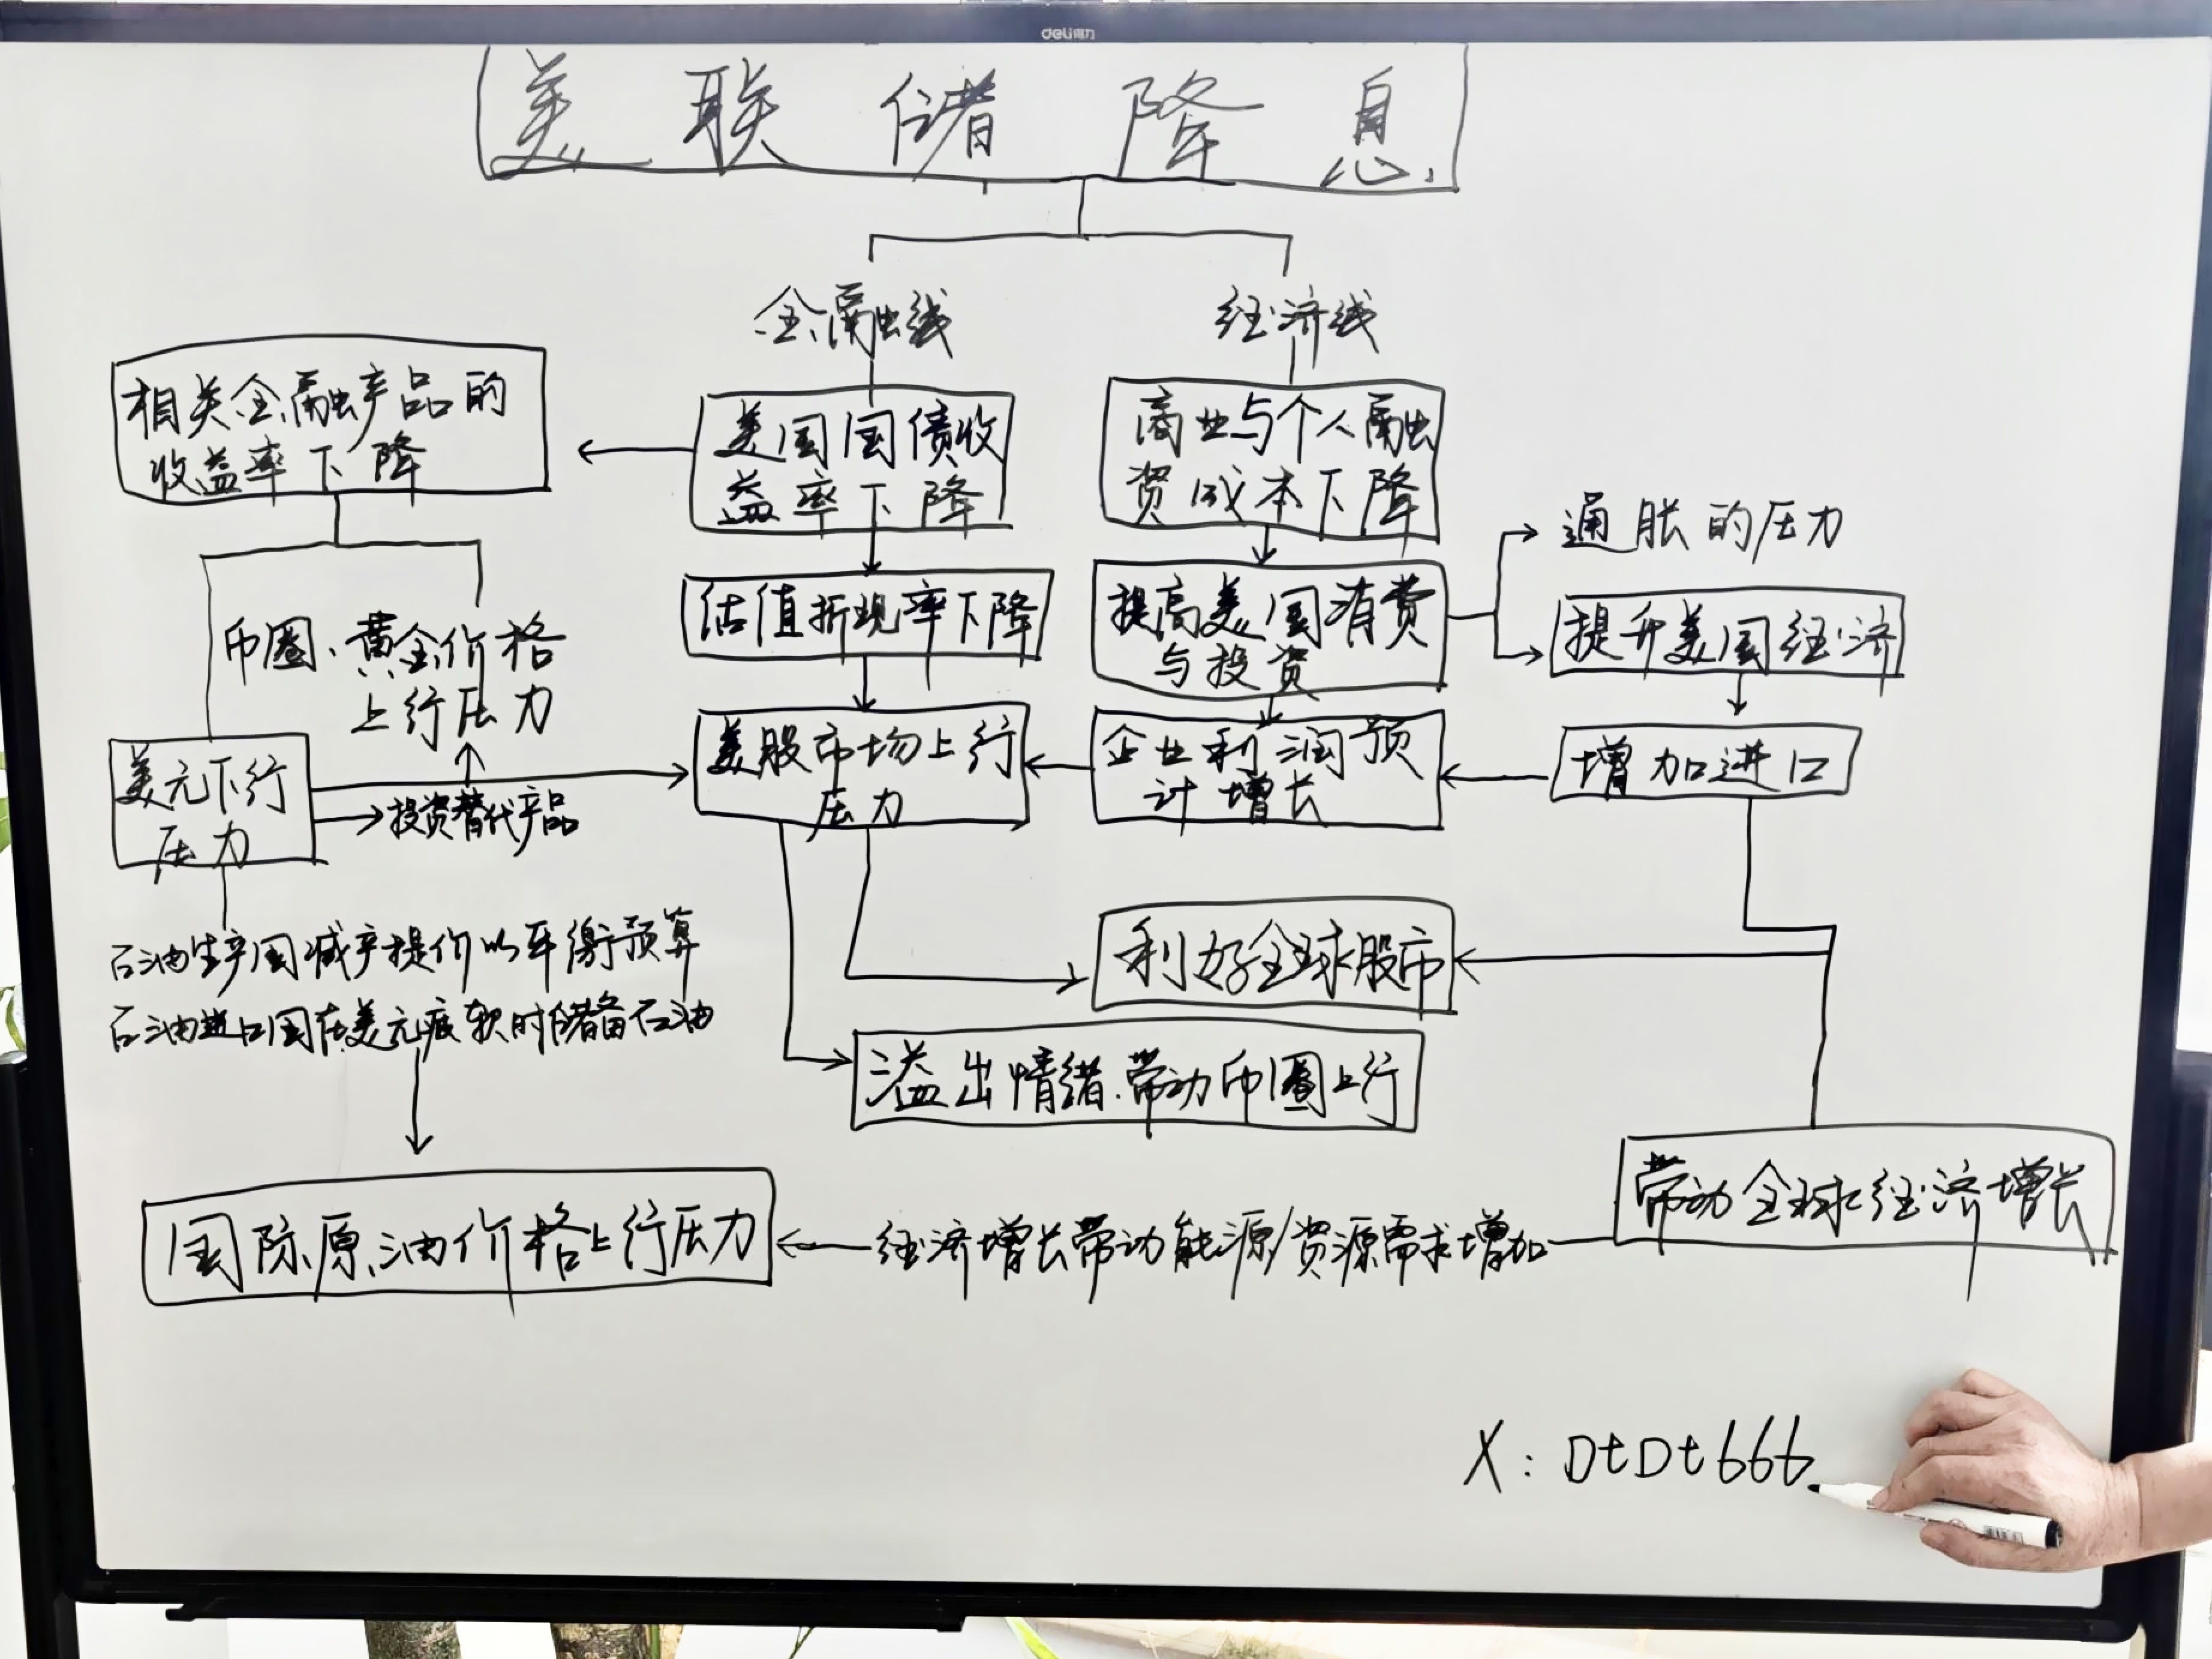 deli得力
美联储降息
金融线
经济线
相关金融产品的
收益率下降
美国国债收
益率下降
商业与个人融
资成本下降
通胀的压力
估值折现率下降
提高美国消费
与投资
提升美国经济
币圈、黄金价格
上行压力
美元下行
压力
投资替代产品
美股市场上行
压力
企业利润预
计增长
增加进口
石油生产国减产提价以平衡预算
石油进口国在美元疲软时储备石油
利好全球股市
溢出情绪.带动币圈上行
带动全球经济增长
国际原油价格上行压力
经济增长带动能源/资源需求增加
X:DtDt666